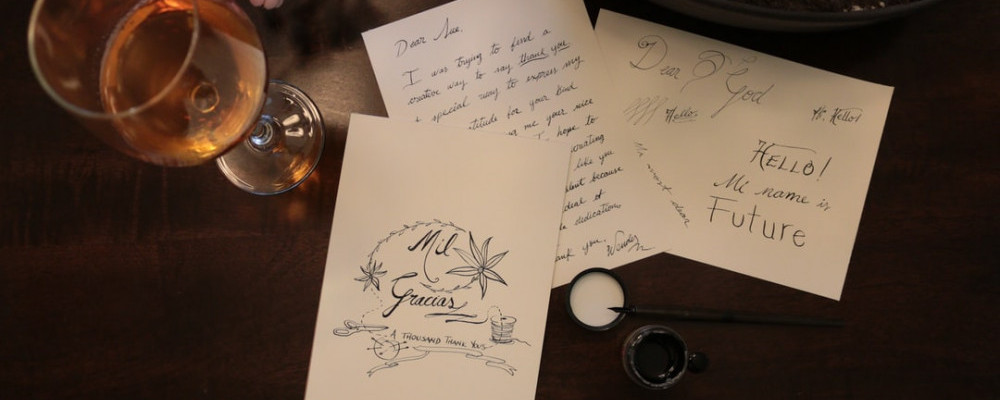 Dear Sue,
I was trying to find a
creative way to say thank you
a special way to express my
titude for your kind
me your nice
I hope to
creating
like you
because
deal of
dedication
ank you, Wendy
Dear God
Hello,
Hi, Hello!
HELLO!
Mi name is
Future
Mil
Gracias
A THOUSAND THANK YOUS